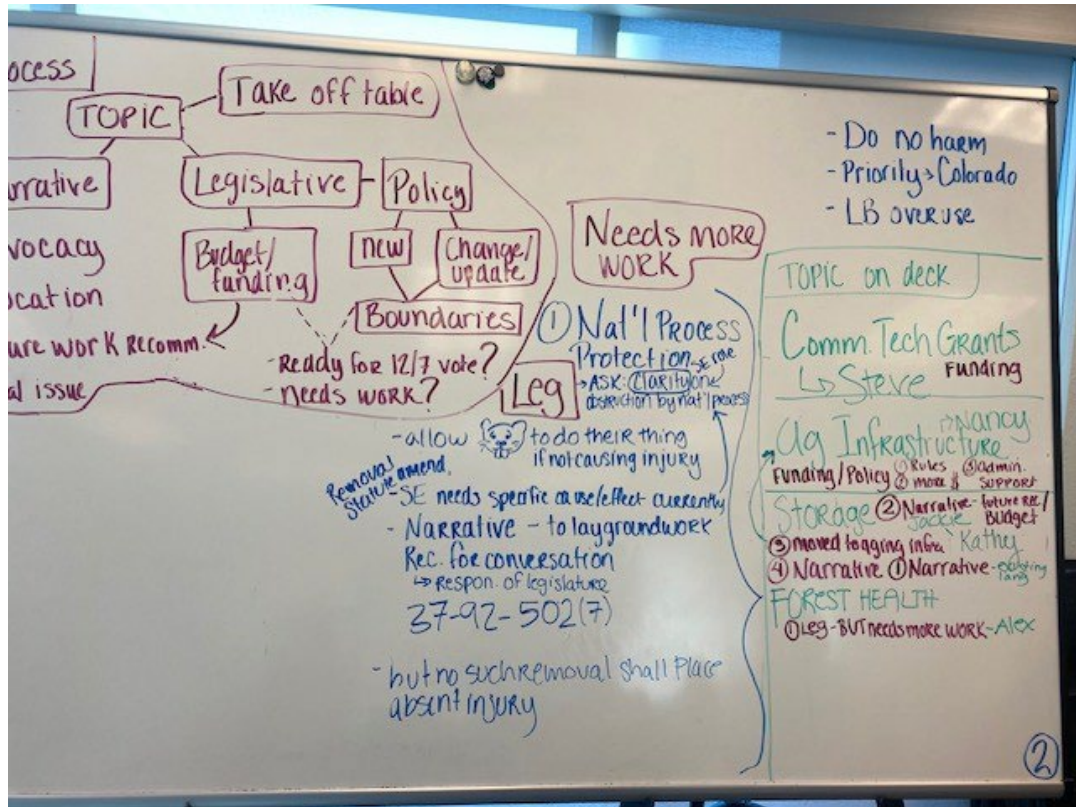 ocess
TOPIC
Take off table
rrative
Legislative
Policy
vocacy
ocation
ure work Recomm.
al issue
Budget/
funding
new
Change/
update
Boundaries
- Ready for 12/7 vote?
- Needs work?
Needs more
work
Leg
① Nat'l Process
Protection - SE role
→ ASK: Clarity on
obstruction by nat'l process
- allow to do their thing
if not causing injury
Removal
Statute amend.
- SE needs specific cause/effect currently
- Narrative - to lay groundwork
Rec. for conversation
↳ Respon. of legislature
37-92-502(7)
- but no such removal shall place
absent injury
- Do no harm
- Priority > Colorado
- LB overuse
TOPIC on deck
Comm. Tech Grants
↳ Steve Funding
→ Nancy
Ag Infrastructure
Funding/Policy ① Rules ② more $ ③ admin. support
Storage ② Narrative - future rec/
Jackie Budget
③ moved to aging infra Kathy
④ Narrative ① Narrative - existing
lang
FOREST HEALTH
① Leg - BUT needs more work - Alex
2